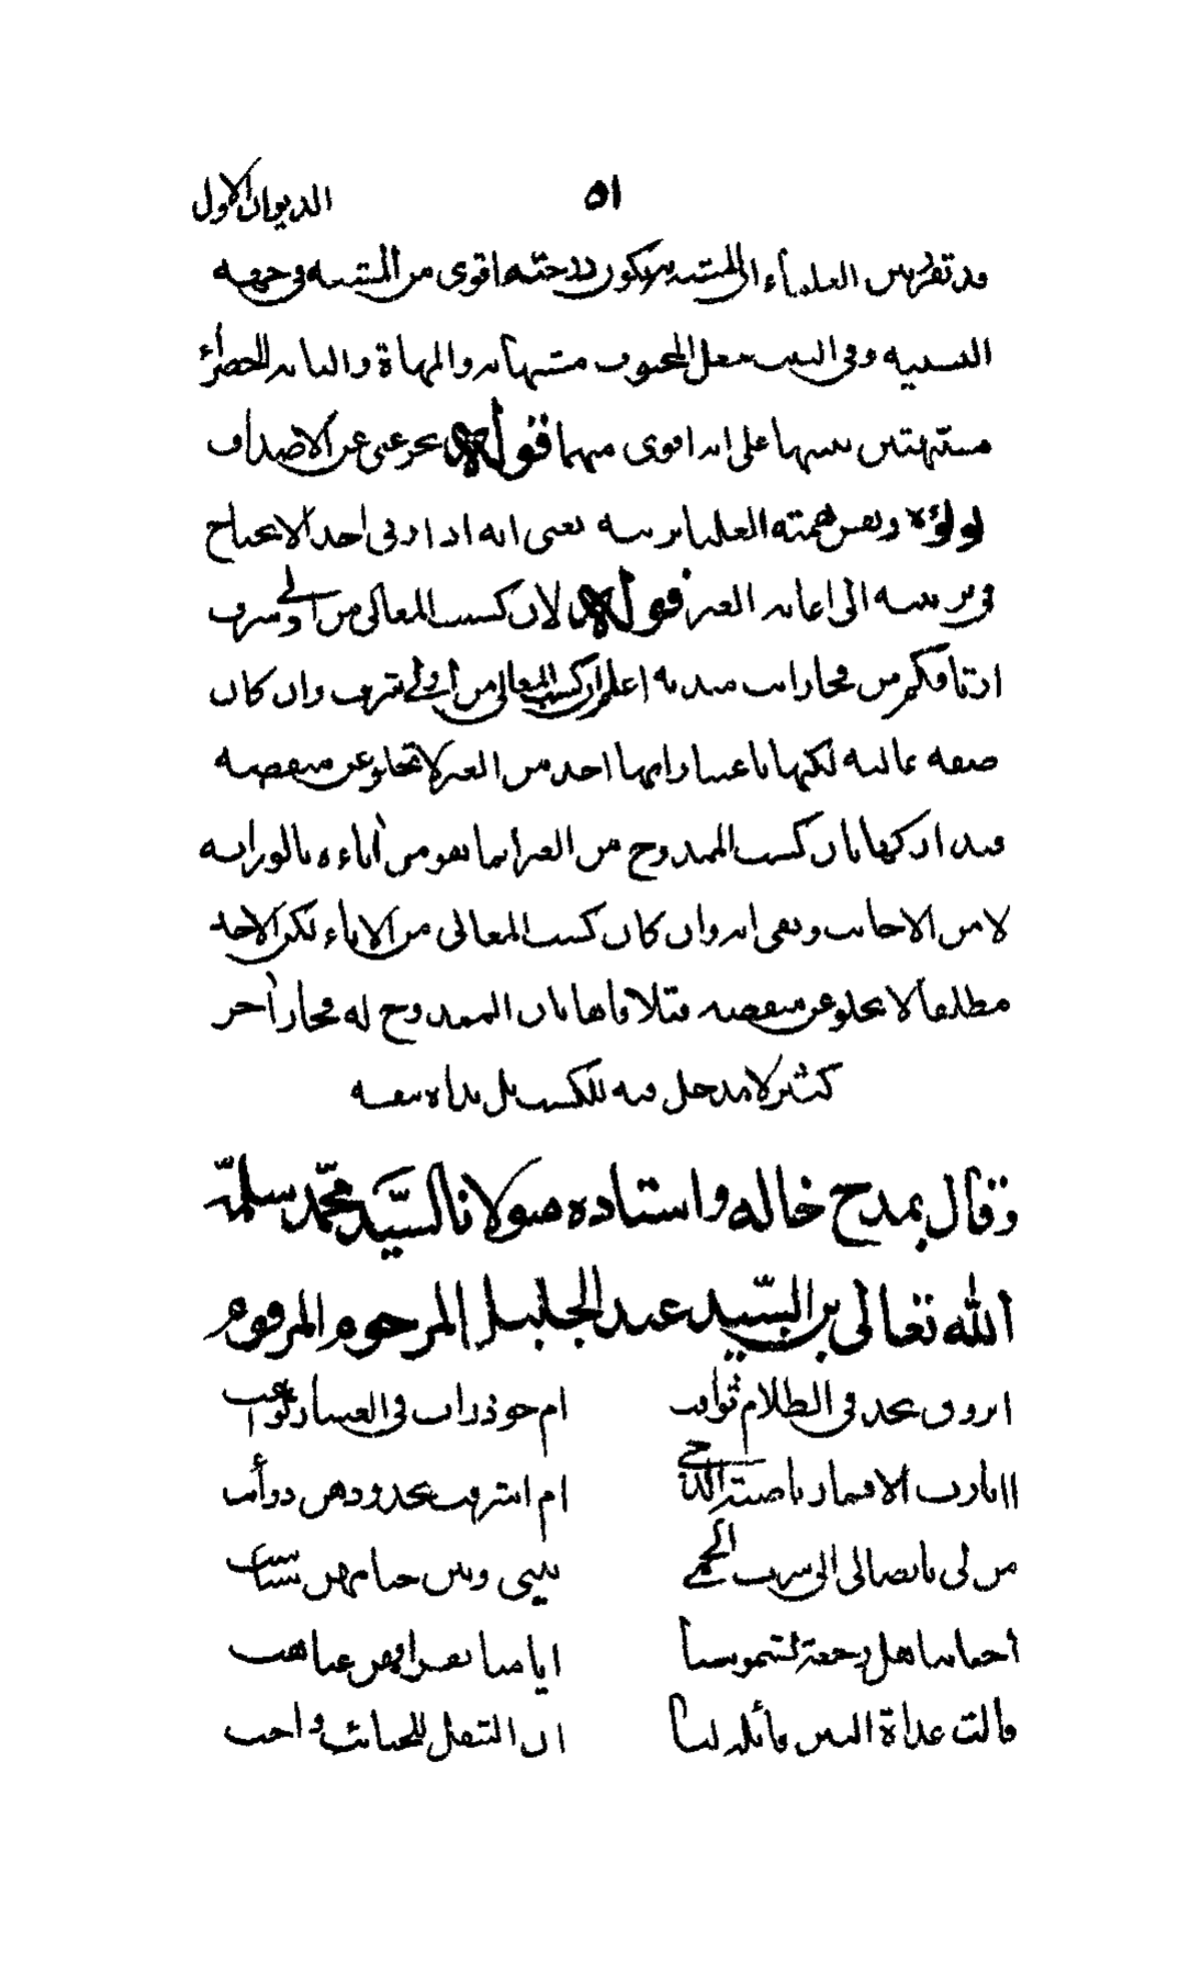 ٥١ الديوان الاول
قد تقرر بين العلماء ان المشبه به يكون درجته اقوى من المشبه في جهة
التشبيه وفى البيت جعل المحبوب مشبها به والمهاة والبانة الخضراء
مشبهتين تنبيها على انه اقوى منهما قوله بحر غنى عن الاصداف
لولؤه ونفس همته العليا تربيه يعنى انه اذا وفى احدا لا يحتاج
فى تربيته الى اعانة الغير قوله لان كسب المعالى من اولى شرف
ارثا فكم من فخار انت مبديه اعلم ان كسب المعالى من اولى شرف وان كان
صفة عالية لكنها باعتبار انها اخذ من الغير لا تخلو عن منقصة
فتداركها بان كسب الممدوح من الغير انما هو من آباءه بالوراثة
لا من الاجانب وبقى انه وان كان كسب المعالى من الآباء لكن الاخذ
مطلقا لا يخلو عن منقصة فتلافاها بان الممدوح له فخار آخر
كثير لا مدخل فيه للكسب بل بداه بنفسه
وقال يمدح خاله واستاده مولانا السيّد محمّد سلمه
الله تعالى بن السيّد عبد الجليل المرحوم المرقوم
ابروق نجد فى الظلام ثواقب
ام جوذرات فى العساكر لواعب
اانارت الاقمار ناصية الدجى
ام اشرقت بخدودهن ذوائب
من لى بايصالى الى سرب الحمى
بينى وبين خيامهن سباسب
أحبابنا هل رجعة لشموسنا
ايامنا بفراقهن غياهب
قالت غداة البين قائلة لنا
ان التنقل للحبائب واجب